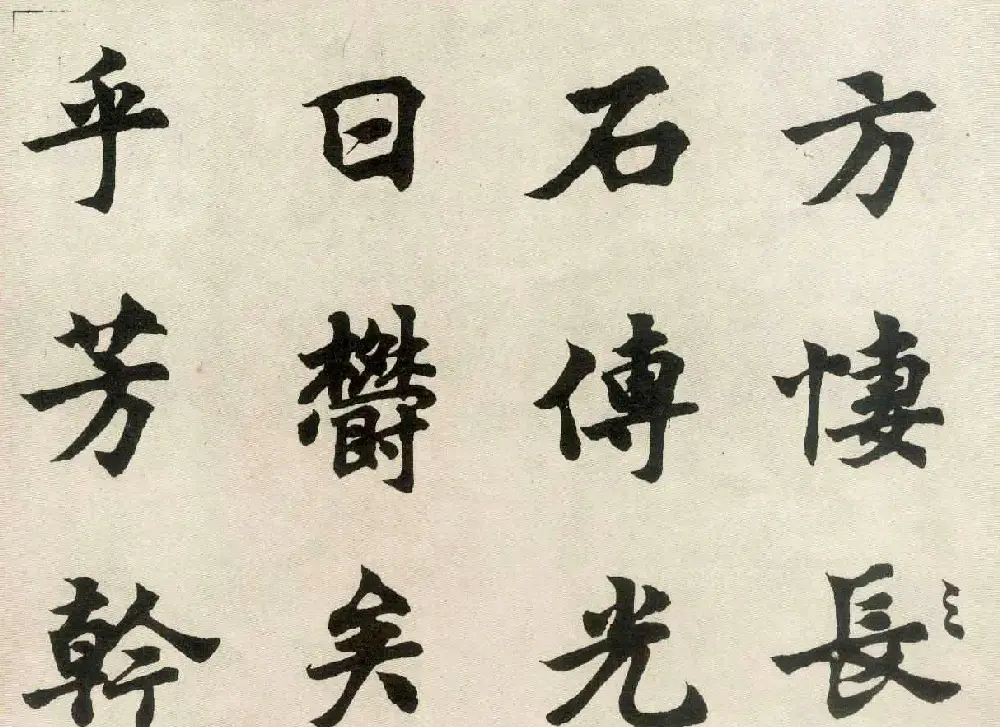 方悽長
石傳光
曰鬱矣
乎芳幹